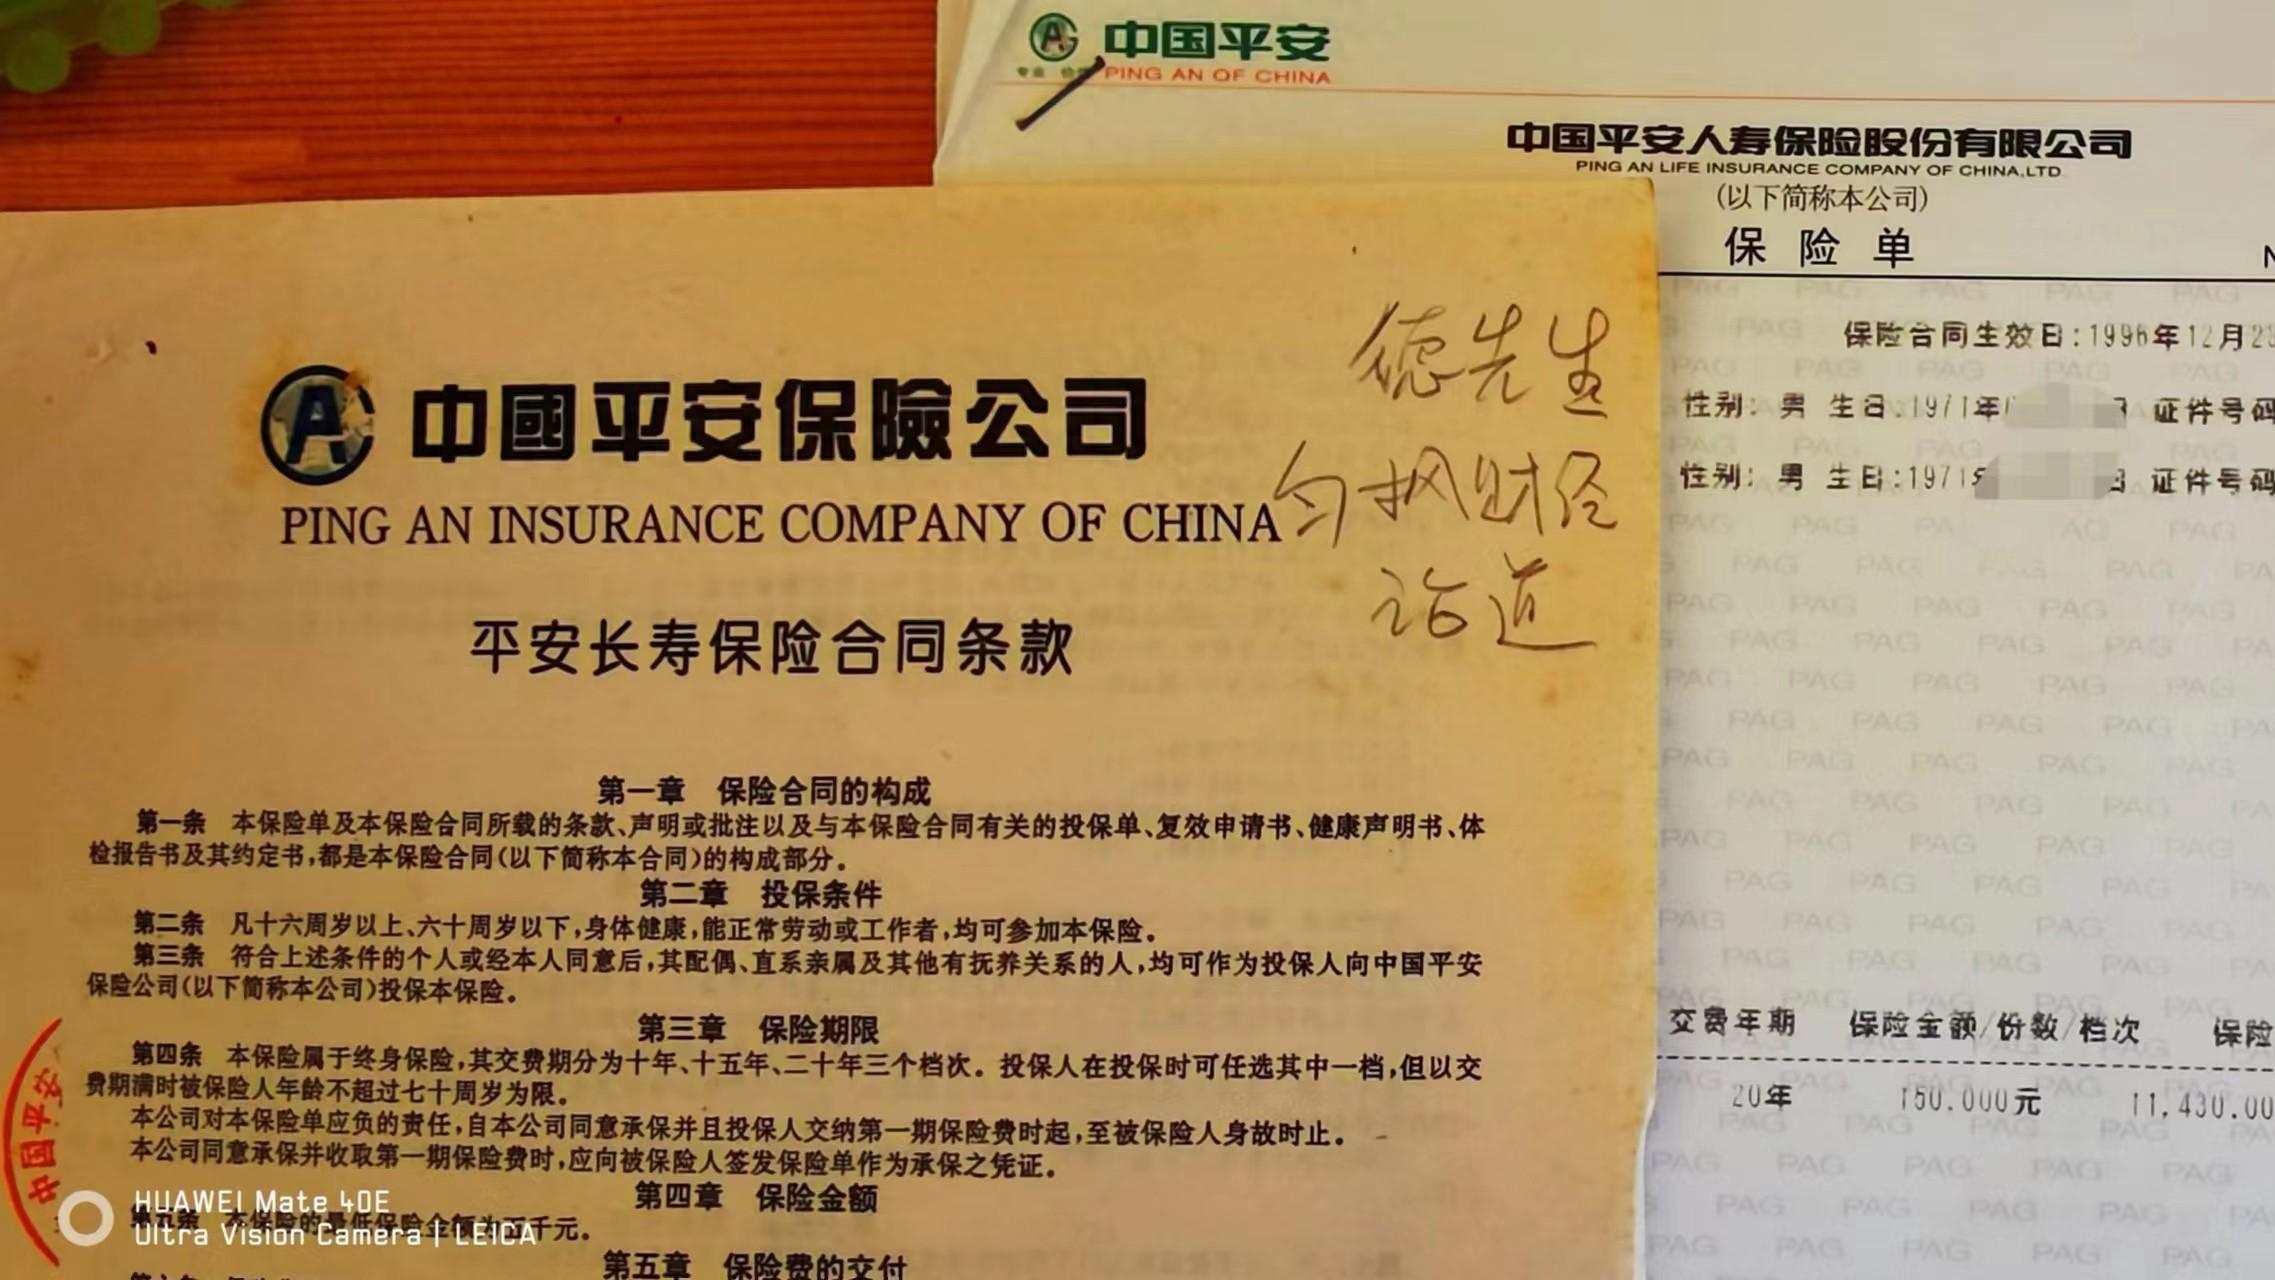 中国平安
PING AN OF CHINA
中国平安人寿保险股份有限公司
PING AN LIFE INSURANCE COMPANY OF CHINA,LTD
(以下简称本公司)
保险单
保险合同生效日:1996年12月2
性别: 男 生日:1971年 证件号码
性别: 男 生日:1971 证件号码
交费年期 保险金额/份数/档次 保险
20年 150.000元 11,430.00
中國平安保險公司
PING AN INSURANCE COMPANY OF CHINA
平安长寿保险合同条款
德先生
勺枫财经
论道
第一章 保险合同的构成
第一条 本保险单及本保险合同所载的条款、声明或批注以及与本保险合同有关的投保单、复效申请书、健康声明书、体
检报告书及其约定书,都是本保险合同(以下简称本合同)的构成部分。
第二章 投保条件
第二条 凡十六周岁以上、六十周岁以下,身体健康,能正常劳动或工作者,均可参加本保险。
第三条 符合上述条件的个人或经本人同意后,其配偶、直系亲属及其他有抚养关系的人,均可作为投保人向中国平安
保险公司(以下简称本公司)投保本保险。
第三章 保险期限
第四条 本保险属于终身保险,其交费期分为十年、十五年、二十年三个档次。投保人在投保时可任选其中一档,但以交
费期满时被保险人年龄不超过七十周岁为限。
本公司对本保险单应负的责任,自本公司同意承保并且投保人交纳第一期保险费时起,至被保险人身故时止。
本公司同意承保并收取第一期保险费时,应向被保险人签发保险单作为承保之凭证。
第四章 保险金额
第五条 本保险的最低保险金额为五千元。
第五章 保险费的交付
中国平安
HUAWEI Mate 40E
Ultra Vision Camera | LEICA